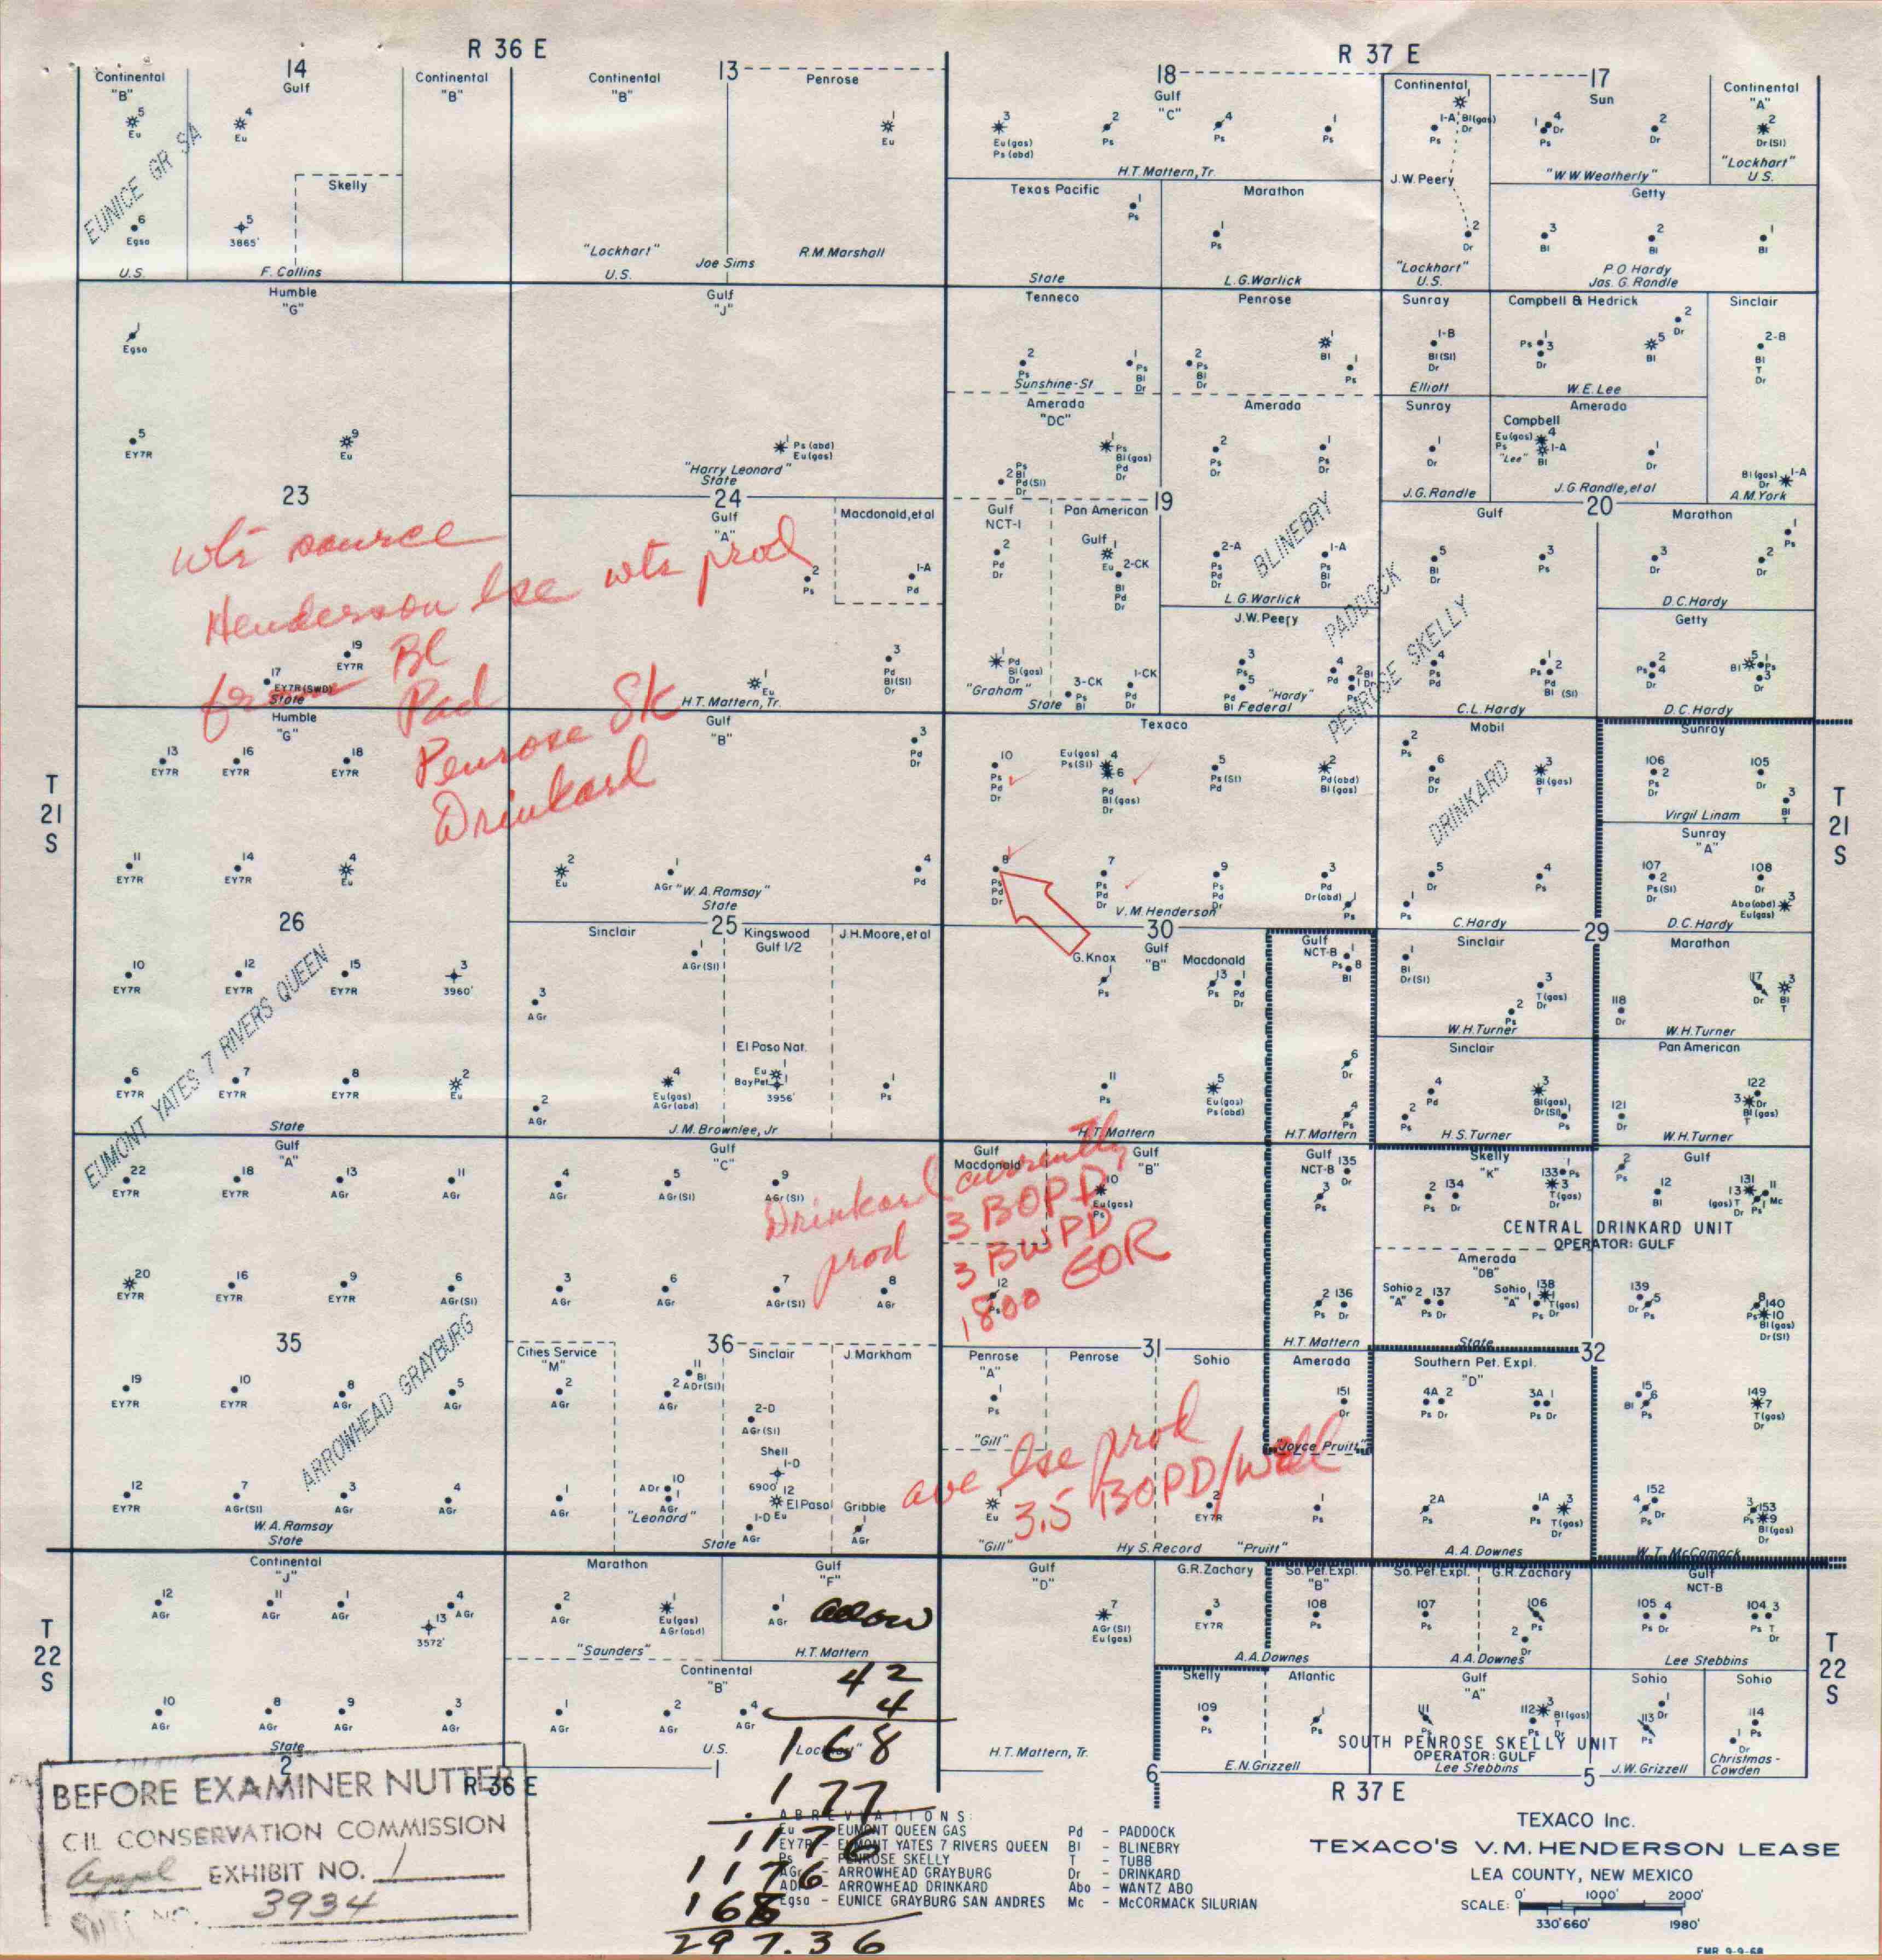 R 36 E
R 37 E
Continental "B"
14
Gulf
Continental "B"
Continental "B"
13
Penrose
18
Gulf "C"
Continental
17
Sun
Continental "A"
5
Eu
4
Eu
1
Eu
3
Eu(gas)
Ps(abd)
2
Ps
4
Ps
1
Ps
1-A Bl(gas)
Dr
Ps
1 4
Dr
Ps
2
Dr
2
Dr(SI)
EUNICE GR SA
Skelly
H.T. Mattern, Tr.
J.W. Peery
"W.W. Weatherly"
"Lockhart"
U.S.
Texas Pacific
Marathon
Getty
6
Egsa
5
3865'
1
Ps
1
Ps
2
Dr
3
Bl
2
Bl
1
Bl
U.S.
F. Collins
"Lockhart"
U.S.
Joe Sims
R.M. Marshall
State
L.G. Warlick
"Lockhart"
U.S.
P.O Hardy
Jas. G. Randle
Humble "G"
Gulf "J"
Tenneco
Penrose
Sunray
Campbell & Hedrick
Sinclair
1
Egsa
2
Ps
Sunshine-St
1
Ps
Bl
Dr
2
Ps
Bl
Dr
1
Bl
1
Ps
1-B
Bl(SI)
Dr
Elliott
Ps 3
Dr
5
Bl
2
Dr
W.E. Lee
2-B
Bl
T
Dr
Amerada "DC"
Amerada
Sunray
Campbell
Amerada
5
EY7R
9
Eu
1
Ps(abd)
Eu(gas)
"Harry Leonard"
State
2
Ps
Bl
Pd(SI)
Dr
1
Ps
Bl(gas)
Pd
Dr
2
Ps
Dr
1
Ps
Dr
1
Dr
J.G. Randle
Eu(gas) 4
Ps 1-A
"Lee" Bl
1
Dr
J.G. Randle, et al
Bl(gas) 1-A
Dr
A.M. York
23
24
19
20
Gulf "A"
Macdonald, et al
Gulf NCT-1
Pan American
Gulf
Marathon
wtr source
Henderson lse wtr prod
from Bl
Pad
Penrose Sk
Drinkard
2
Ps
1-A
Pd
2
Pd
Dr
Gulf 1
Eu 2-CK
Bl
Pd
Dr
2-A
Ps
Pd
Dr
1-A
Ps
Bl
Dr
BLINEBRY
5
Bl
Dr
3
Ps
3
Dr
2
Dr
1
Ps
L.G. Warlick
D.C. Hardy
J.W. Peery
PADDOCK
PENROSE SKELLY
Getty
17
EY7R(SWD)
State
19
EY7R
1
Eu
H.T. Mattern, Tr.
3
Pd
Bl(SI)
Dr
1
Pd
Bl(gas)
Dr
"Graham"
3-CK
Ps
Bl
State
1-CK
Pd
Dr
3
5
Pd
Bl
"Hardy"
Federal
4
Ps
Pd
2 Bl
1 Dr
Ps
4
Ps
Pd
1 2
Ps
Pd
Bl (SI)
C.L. Hardy
2
Ps 4
Dr
5 1
Bl Ps
3
Dr
D.C. Hardy
Humble "G"
Gulf "B"
Texaco
Mobil
Sunray
T 21 S
13
EY7R
16
EY7R
18
EY7R
3
Pd
Dr
10
Ps
Pd
Dr
Eu(gas) 4
Ps(SI) 6
Pd
Bl(gas)
Dr
5
Ps(SI)
Pd
2
Pd(abd)
Bl(gas)
2
Ps
6
Pd
Dr
3
Bl(gas)
T
106
2
Ps
Dr
105
Dr
3
Bl
T
Virgil Linam
T 21 S
DRINKARD
Sunray "A"
11
EY7R
14
EY7R
4
Eu
2
Eu
1
AGr "W.A. Ramsay"
State
4
Pd
8
Ps
Pd
Dr
7
Ps
Pd
Dr
V.M. Henderson
9
Ps
Pd
Dr
3
Pd
Dr(abd) 1
Ps
5
Dr
1
Ps
4
Ps
C. Hardy
107
2
Ps(SI)
108
Dr
Abo(abd) 3
Eu(gas)
D.C. Hardy
26
25
30
29
Sinclair
Kingswood
Gulf 1/2
J.H. Moore, et al
G. Knox
Gulf "B"
Macdonald
Gulf NCT-B
Sinclair
Marathon
10
EY7R
12
EY7R
15
EY7R
3
3960'
3
AGr
1
AGr(SI)
1
Ps
13
Ps
1
Pd
Dr
1
Ps 8
Bl
1
Bl
Dr(SI)
3
T(gas)
Dr
2
Ps
W.H. Turner
118
Dr
117
Dr
3
Bl
T
W.H. Turner
EUMONT YATES 7 RIVERS QUEEN
El Paso Nat.
Sinclair
Pan American
6
EY7R
7
EY7R
8
EY7R
2
Eu
2
AGr
4
Eu(gas)
AGr(abd)
Eu
Bay Pet. 1
3956'
1
Ps
11
Ps
5
Eu(gas)
Ps(abd)
6
Dr
4
Ps
4
Pd
2
Ps
3
Bl(gas)
Dr(SI) 1
Ps
121
Dr
122
3 Dr
Bl(gas)
T
State
J.M. Brownlee, Jr
H.T. Mattern
H.T. Mattern
H.S. Turner
W.H. Turner
Gulf "A"
Gulf "C"
Gulf
Macdonald
Gulf "B"
Gulf NCT-B
Skelly "K"
Gulf
22
EY7R
18
EY7R
13
AGr
11
AGr
4
AGr
5
AGr(SI)
9
AGr(SI)
10
Eu(gas)
Ps
135
Dr
3
Ps
2 134
Ps Dr
133 1 Ps
3
T(gas)
Dr
2
Ps
12
Bl
131
13 11
(gas)T 1 Mc
Dr Ps
Drinkard currently
prod 3 BOPD
3 BWPD
1800 GOR
CENTRAL DRINKARD UNIT
OPERATOR: GULF
Amerada "DB"
20
EY7R
16
EY7R
9
EY7R
6
AGr(SI)
3
AGr
6
AGr
7
AGr(SI)
8
AGr
12
Ps
2 136
Ps Dr
Sohio 2 137
"A"
Ps Dr
Sohio 138
"A" 1 T(gas)
Ps Dr
139
Dr 5
Ps
8
140
Ps 10
Bl(gas)
Dr(SI)
H.T. Mattern
State
35
36
31
32
ARROWHEAD GRAYBURG
Cities Service "M"
Sinclair
J. Markham
Penrose "A"
Penrose
Sohio
Amerada
Southern Pet. Expl. "D"
19
EY7R
10
EY7R
8
AGr
5
AGr
2
AGr
11
Bl
2 ADr(SI)
AGr
2-D
AGr(SI)
1
Ps
"Gill"
151
Dr
"Joyce Pruitt"
4A 2
Ps Dr
3A 1
Ps Dr
15
6
Bl Ps
149
7
T(gas)
Dr
ave lse prod
3.5 BOPD/well
12
EY7R
7
AGr(SI)
3
AGr
4
AGr
1
AGr
10
ADr 1
AGr
"Leonard"
Shell
1-D
6900' 12
El Paso
1-D Eu
AGr
Gribble
1
AGr
1
Eu
2
EY7R
1
Ps
2A
Ps
1A
Ps
3
T(gas)
Dr
152
4 Dr
Ps
3
153
Ps 9
Bl(gas)
Dr
W.A. Ramsay
State
State
"Gill"
Hy S. Record
"Pruitt"
A.A. Downes
W.T. McComack
Continental "J"
Marathon
Gulf "F"
Gulf "D"
G.R. Zachary
So. Pet. Expl. "B"
So. Pet. Expl.
G.R. Zachary
Gulf NCT-B
T 22 S
12
AGr
11
AGr
1
AGr
4
AGr
13
3572'
2
AGr
1
Eu(gas)
AGr(abd)
1
AGr
7
AGr(SI)
Eu(gas)
3
EY7R
108
Ps
107
Ps
106
Ps
2
Dr
105 4
Ps Dr
104 3
Ps T
Dr
T 22 S
"Saunders"
H.T. Mattern
A.A. Downes
A.A. Downes
Lee Stebbins
Continental "B"
Skelly
Atlantic
Gulf "A"
Sohio
Sohio
10
AGr
8
AGr
9
AGr
3
AGr
1
AGr
2
AGr
4
AGr
109
Ps
1
Ps
111
Ps
112 3
Bl(gas)
T
Ps Dr
1
Dr
113
Ps
114
1 Ps
Dr
State
U.S.
H.T. Mattern, Tr.
E.N. Grizzell
SOUTH PENROSE SKELLY UNIT
OPERATOR: GULF
Lee Stebbins
J.W. Grizzell
Christmas-
Cowden
2
1
6
5
R 36 E
R 37 E
42
4
168
177
1176
1176
168
297.36
BEFORE EXAMINER NUTTER
OIL CONSERVATION COMMISSION
appl EXHIBIT NO. 1
3934
ABBREVIATIONS:
Eu - EUMONT QUEEN GAS
EY7R - EUMONT YATES 7 RIVERS QUEEN
Ps - PENROSE SKELLY
AGr - ARROWHEAD GRAYBURG
ADr - ARROWHEAD DRINKARD
Egsa - EUNICE GRAYBURG SAN ANDRES
Pd - PADDOCK
Bl - BLINEBRY
T - TUBB
Dr - DRINKARD
Abo - WANTZ ABO
Mc - McCORMACK SILURIAN
TEXACO Inc.
TEXACO'S V.M. HENDERSON LEASE
LEA COUNTY, NEW MEXICO
SCALE: 0' 1000' 2000'
330' 660' 1980'
FMR 9-9-68